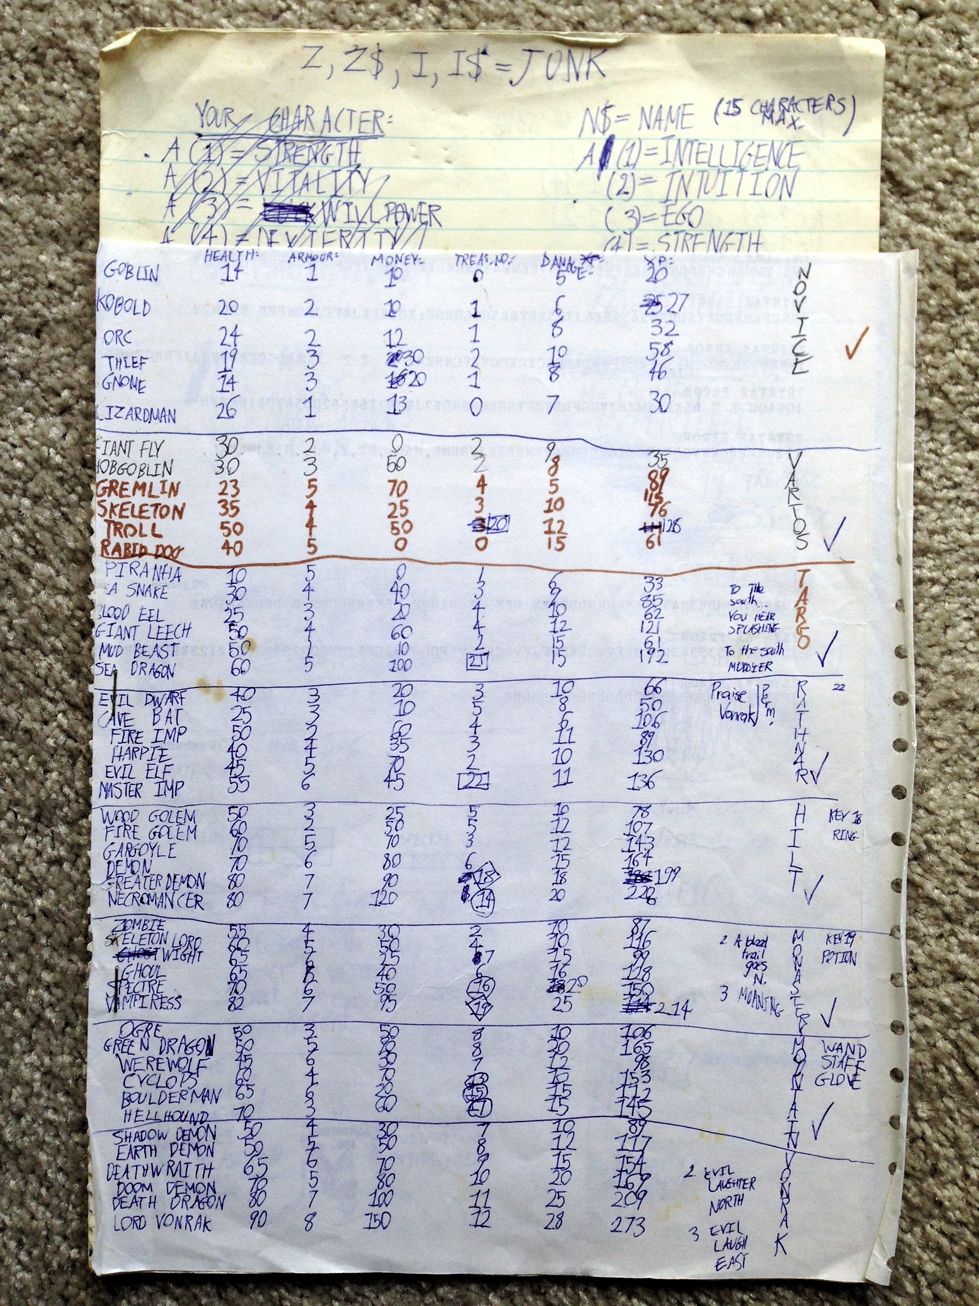 Z, Z$, I, I$ = JUNK
YOUR CHARACTER:
N$ = NAME (15 CHARACTERS MAX.)
A (1) = STRENGTH
A (1) = INTELLIGENCE
A (2) = VITALITY
(2) = INTUITION
A (3) = WILLPOWER
(3) = EGO
A (4) = DEXTERITY
(4) = STRENGTH
HEALTH: ARMOUR: MONEY: TREAS.NO: DAMAGE XP:
GOBLIN 14 1 10 0 5 20
KOBOLD 20 2 10 1 6 27
ORC 24 2 12 1 8 32
THIEF 19 3 30 2 10 58
GNOME 14 3 20 1 8 46
LIZARDMAN 26 4 13 0 7 30
NOVTICE
GIANT FLY 30 2 0 2 8 35
HOBGOBLIN 30 3 50 2 8
GREMLIN 23 5 70 4 5 89
SKELETON 35 4 25 3 10
TROLL 50 4 50 20 12 128
RABID DOG 40 5 0 0 15 61
VARTOS
PIRANHA 10 5 0 1 6 33
SEA SNAKE 30 4 40 3 65
BLOOD EEL 25 3 20 4 10 62
GIANT LEECH 50 4 60 12 121
MUD BEAST 50 10 15
SEA DRAGON 60 5 100 21 15 192
TARGO
TO THE
SOUTH
YOU HEAR
SPLASHING
TO THE SOUTH
MURDER
EVIL DWARF 40 3 20 3 10 66
CAVE BAT 25 3 10 5 8 50
FIRE IMP 50 2 60 4 6 106
HARPIE 40 4 35 3 11 89
EVIL ELF 45 5 70 2 10 130
MASTER IMP 55 6 45 22 11 136
RATHNAR
Praise
Vonrak
22
WOOD GOLEM 50 3 25 5 10 78
FIRE GOLEM 60 2 50 5 12 107
GARGOYLE 70 5 70 3 12 143
DEMON 70 6 80 6 15 164
GREATER DEMON 80 7 90 18 18 199
NECROMANCER 80 7 120 14 20 226
HILT
KEY 16
RING
ZOMBIE 55 4 30 2 10 87
SKELETON LORD 60 5 50 4 10 116
WIGHT 65 7 25 7 15 99
GHOUL 65 40 6 16 118
SPECTRE 70 6 50 16 20 150
VAMPIRESS 82 7 95 19 25 214
MONASTERY
2 A blood
trail
goes
N.
3 MOANING
KEY 19
POTION
OGRE 50 3 50 8 10 106
GREEN DRAGON 50 5 20 8 20 165
WEREWOLF 45 2 30 7 12 98
CYCLOPS 60 4 10 153
BOULDERMAN 65 8 20 15 15 172
HELLHOUND 70 3 60 17 15 145
MOUNTAIN
WAND
STAFF
GLOVE
SHADOW DEMON 50 4 30 7 10 89
EARTH DEMON 50 50 8 12 117
DEATHWRAITH 65 6 70 9 15 154
DOOM DEMON 70 5 80 10 20 169
DEATH DRAGON 80 7 100 11 25 209
LORD VONRAK 90 8 150 12 28 273
VONRAK
2 EVIL
LAUGHTER
NORTH
3 EVIL
LAUGH
EAST